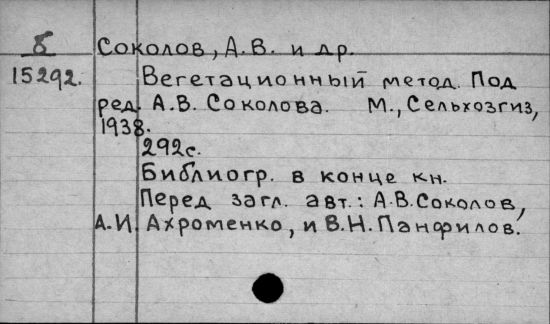 Б Соколов, А.В. и др.
15292. Вегетационный метод. Под
ред. А.В. Соколова. М., Сельхозгиз,
1938.
292с.
Библиогр. в конце кн.
Перед загл. авт.: А.В.Соколов,
А.И. Ахроменко, и В.Н.Панфилов.